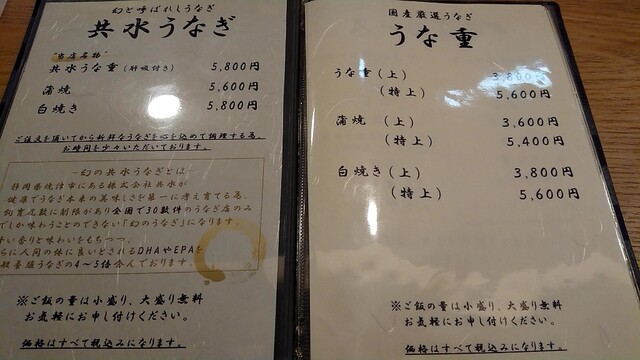 幻と呼ばれしうなぎ
共水うなぎ
"当店名物"
共水うな重(肝吸付き) 5,800円
蒲焼 5,600円
白焼き 5,800円
ご注文を頂いてから新鮮なうなぎを心を込めて調理する為、
お時間を少々いただいております。
―幻の共水うなぎとは―
静岡県焼津市にある株式会社共水が
健康でうなぎ本来の美味しさを第一に考え育てる為、
飼育尾数に制限があり全国で30数件のうなぎ店のみ
でしか味わうことのできない「幻のうなぎ」になります。
い香りと味わいをもちつつ、
らに人間の体に良いとされるDHAやEPAを
般養鰻うなぎの4〜5倍含んでおります。
※ご飯の量は小盛り、大盛り無料
お気軽にお申し付けください。
価格はすべて税込みになります。
国産厳選うなぎ
うな重
うな重(上) 3,800円
(特上) 5,600円
蒲焼 (上) 3,600円
(特上) 5,400円
白焼き(上) 3,800円
(特上) 5,600円
※ご飯の量は小盛り、大盛り無料
お気軽にお申し付けください。
価格はすべて税込みになります。